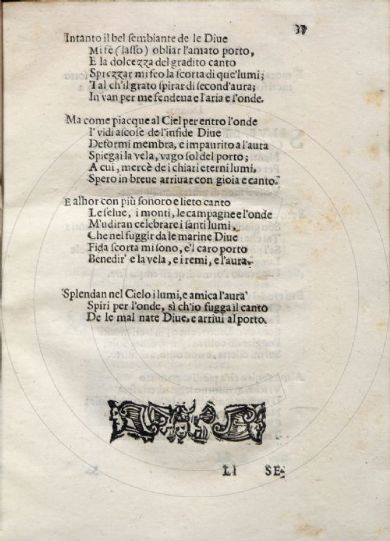 37
Intanto il bel sembiante de le Diue
Mi fè (lasso) obliar l'amato porto,
E la dolcezza del gradito canto
Sprezzar mi feo la scorta di que' lumi;
Tal ch'il grato spirar di second'aura;
In van per me fendeua e l'aria e l'onde.
Ma come piacque al Ciel per entro l'onde
I' vidi ascose de l'infide Diue
Deformi membra, e impaurito a l'aura
Spiegai la vela, vago sol del porto;
A cui, mercè de i chiari eterni lumi,
Spero in breue arriuar con gioia e canto.
E alhor con più sonoro e lieto canto
Le selue, i monti, le campagne e l'onde
M'udiran celebrare i santi lumi,
Che nel fuggir da le marine Diue
Fida scorta mi sono, e'l caro porto
Benedir' e la vela, e i remi, e l'aura.
Splendan nel Cielo i lumi, e amica l'aura
Spiri per l'onde, sì ch'io fugga il canto
De le mal nate Diue, e arriui al porto.
LI SE-